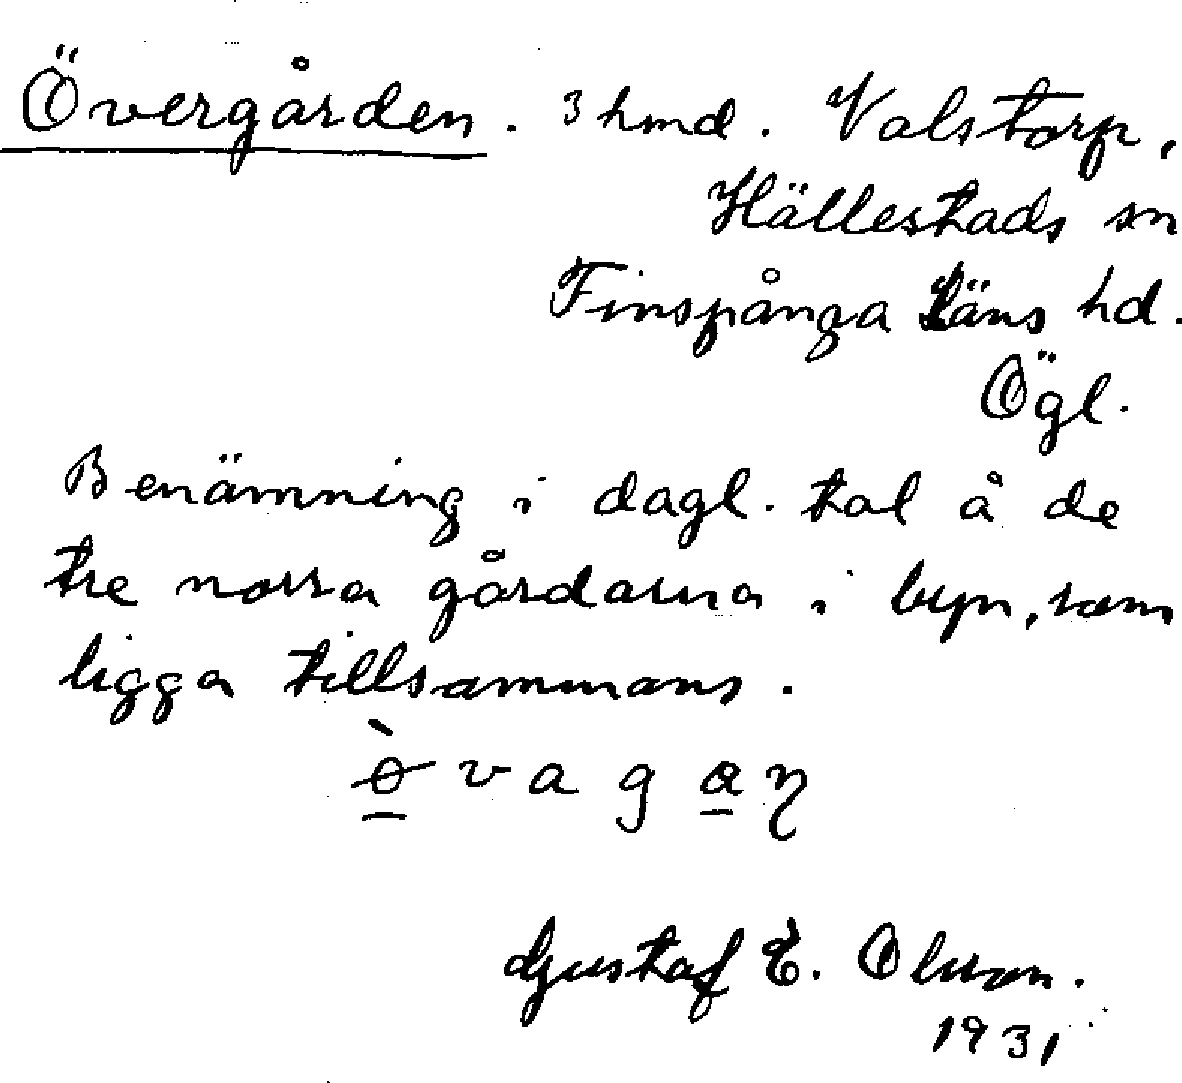 Övergården. 3 hmd. Valstorp,
Hällestads sn
Finspånga Läns hd.
Ögl.
Benämning i dagl. tal å de
tre norra gårdarna i byn, som
ligga tillsammans.
ø̱̀ v a g a̱ ŋ
Gustaf E. Olsson.
1931